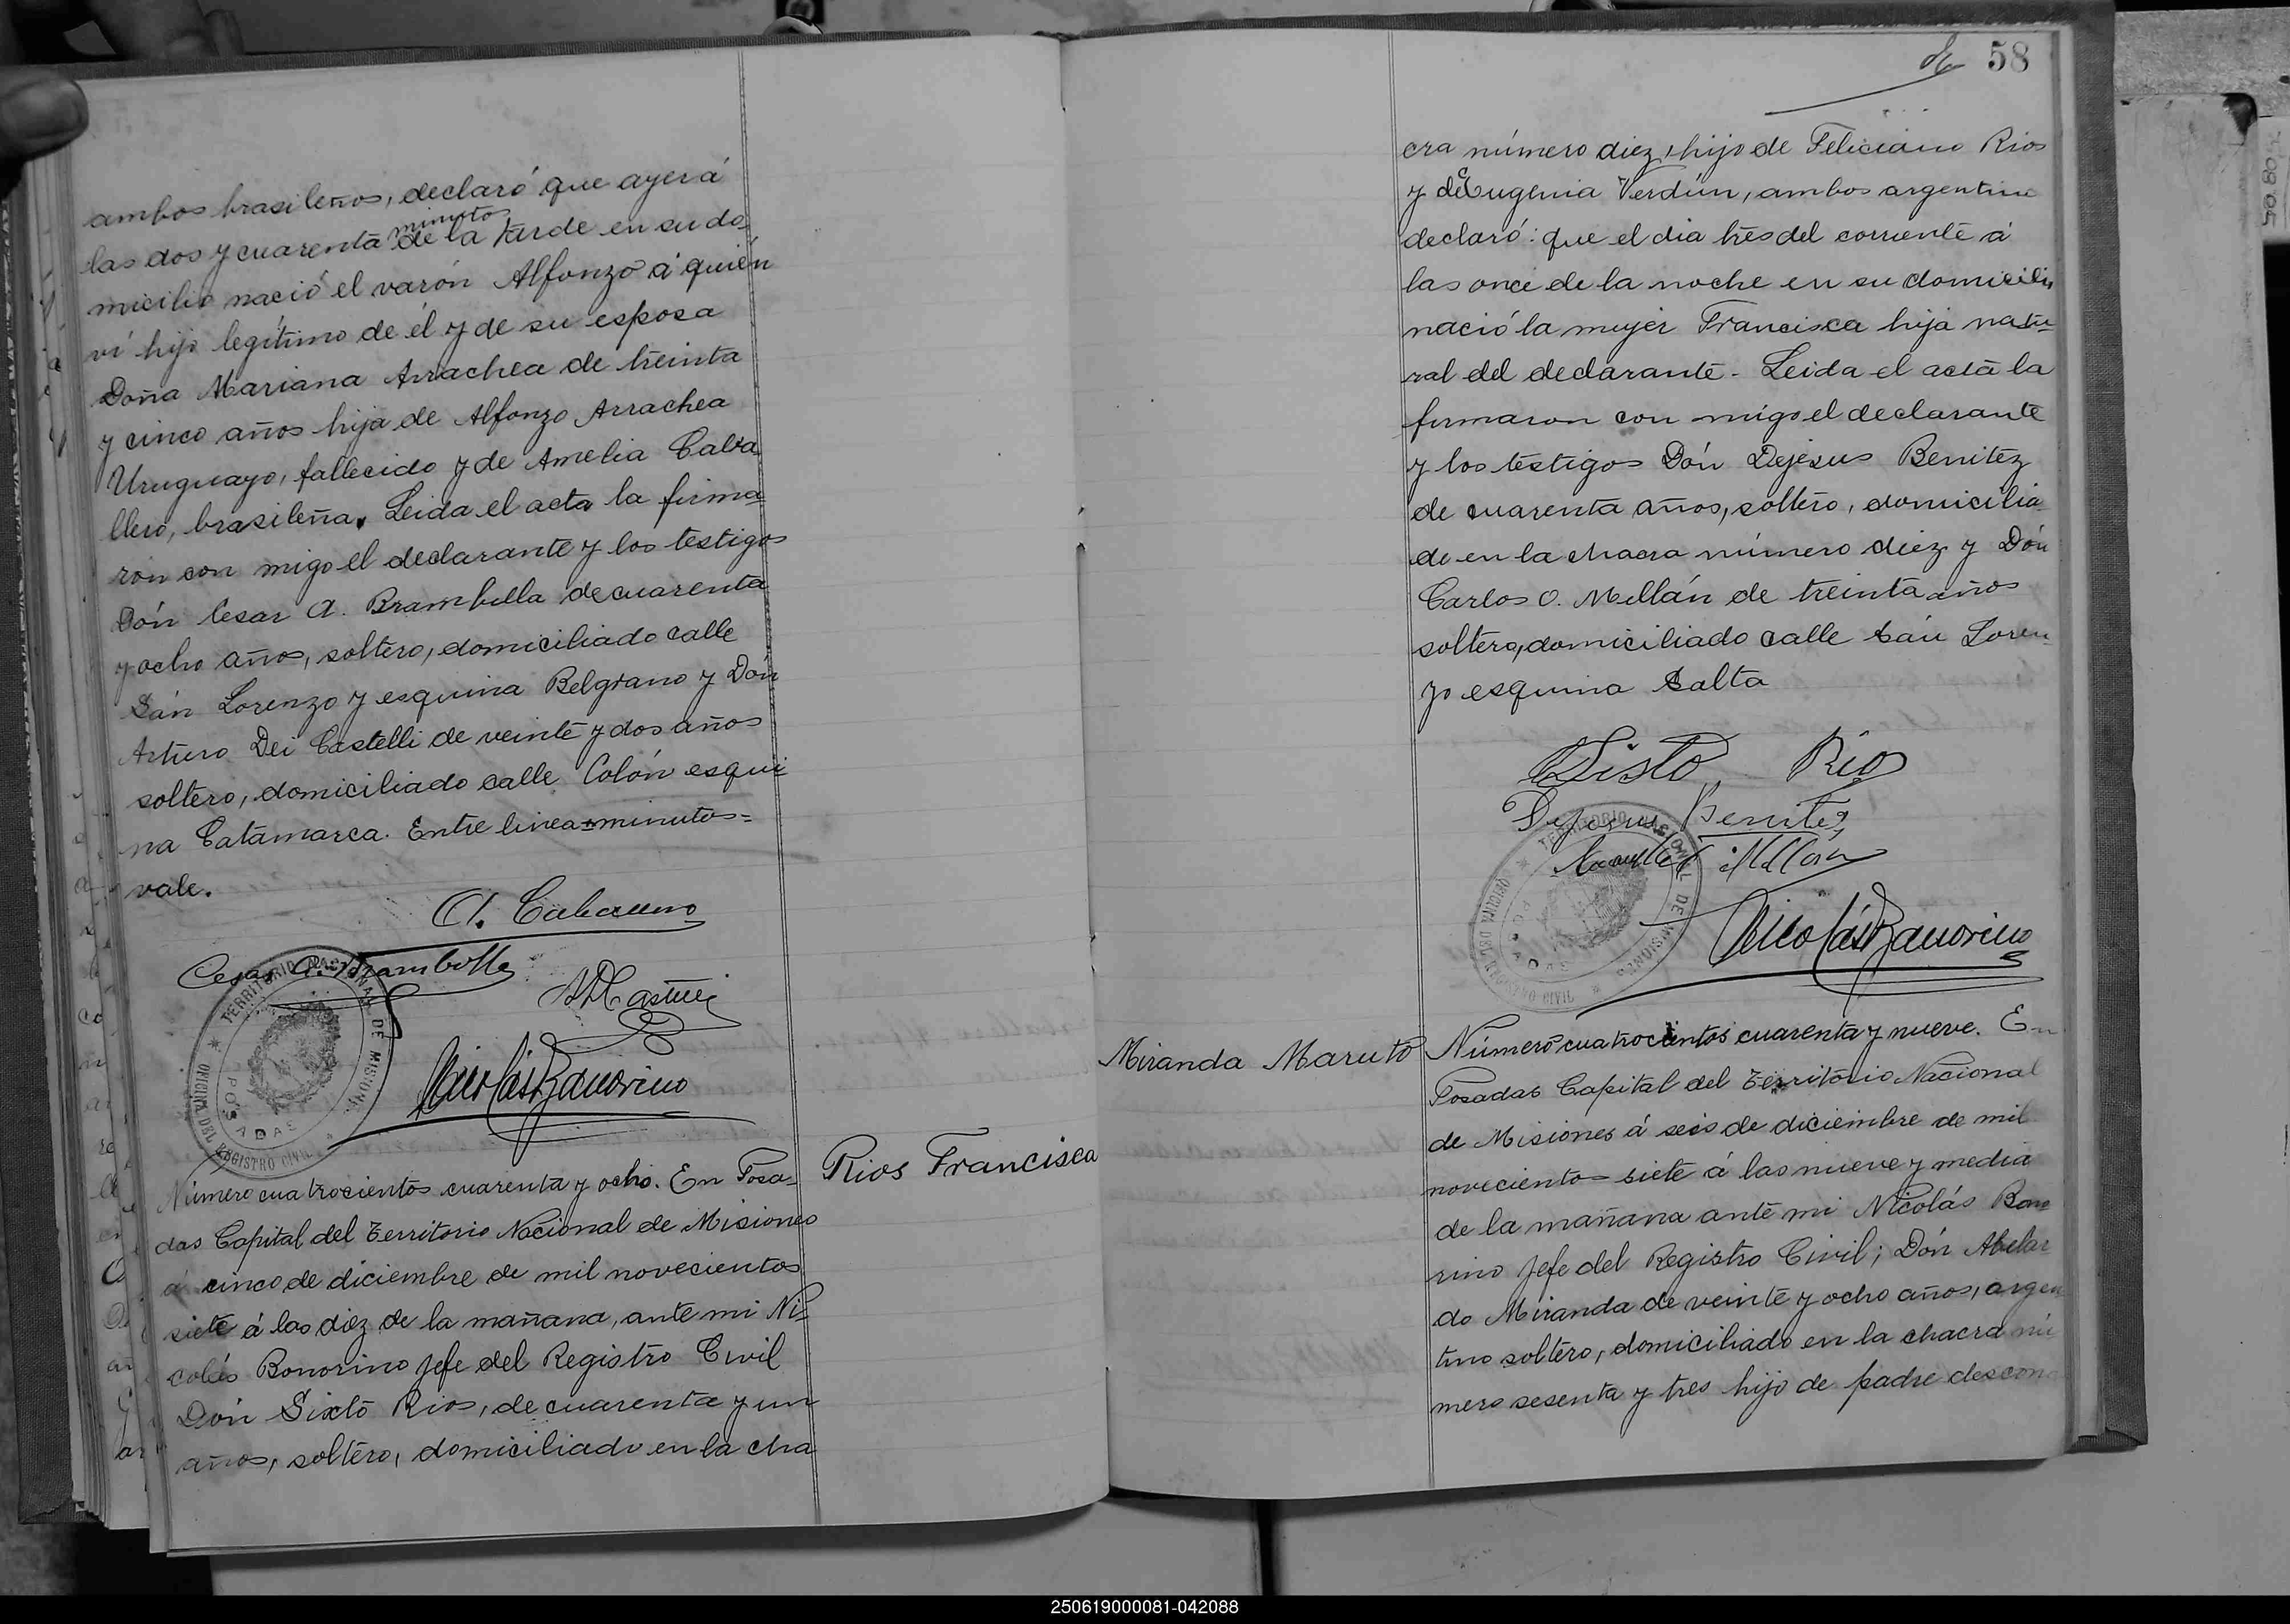 ambos brasileños, declaró que ayer á
las dos y cuarenta minutos de la tarde en su do-
micilio nació el varón Alfonzo á quién
ví hijo legítimo de él y de su esposa
Doña Mariana Arrachea de treinta
y cinco años hija de Alfonzo Arrachea
Uruguayo, fallecido y de Amelia Caba
llero, brasileña. Leida el acta la firma-
ron con migo el declarante y los testigos
Dón Cesar A. Brambilla de cuarenta
y ocho años, soltero, domiciliado calle
Sán Lorenzo y esquina Belgrano y Dón
Arturo Dei Castelli de veinte y dos años
soltero, domiciliado calle Colón esqui
na Catamarca. Entre lineas=minutos=
vale.
Cesar A. Brambilla
TERRITORIO NACIONAL DE MISIONES
OFICINA DEL REGISTRO CIVIL
POSADAS
Nicolás Bonorino
Número cuatrocientos cuarenta y ocho. En Posa-
das Capital del Territorio Nacional de Misiones
á cinco de diciembre de mil novecientos
siete á las diez de la mañana, ante mi Ni-
colás Bonorino Jefe del Registro Civil
Dón Sixto Rios, de cuarenta y un
años, soltero, domiciliado en la cha
Rios Francisca
58
cra número diez, hijo de Feliciano Rios
y de Eugenia Verdún, ambos argentino
declaró: que el dia tres del corriente á
las once de la noche en su domicilio
nació la mujer Francisca hija natu-
ral del declarante. Leida el acta la
firmaron con migo el declarante
y los testigos Dón Dejesus Benitez
de cuarenta años, soltero, domicilia
do en la chacra número diez y Dón
Carlos O. Millán de treinta años
soltero, domiciliado calle Sán Loren
zo esquina Salta
Sisto Rios
Dejesus Benitez
Millán
TERRITORIO NACIONAL DE MISIONES
OFICINA DEL REGISTRO CIVIL
POSADAS
Nicolás Bonorino
Miranda Maruto
Número cuatrocientos cuarenta y nueve. En
Posadas Capital del Territorio Nacional
de Misiones á seis de diciembre de mil
novecientos siete á las nueve y media
de la mañana ante mi Nicolás Bono
rino Jefe del Registro Civil; Dón Abelar
do Miranda de veinte y ocho años, argen
tino soltero, domiciliado en la chacra nú
mero sesenta y tres hijo de padre descono
250619000081-042088